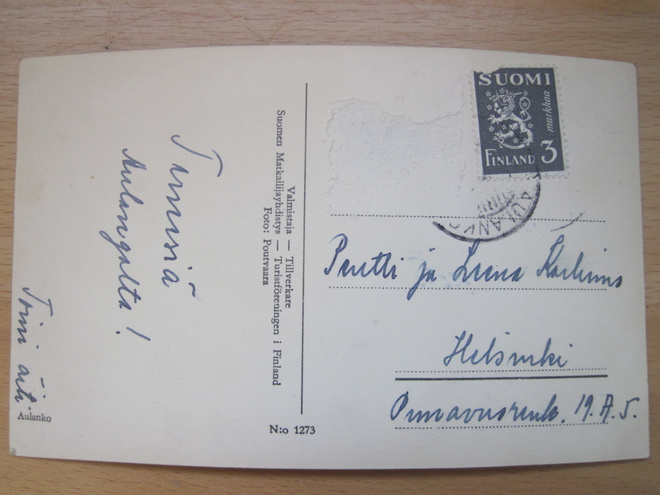 Terveisiä
Aulangolta!
Toini äiti
Aulanko
Valmistaja — Tillverkare
Suomen Matkailijayhdistys — Turistföreningen i Finland
Foto: Poutvaara
N:o 1273
SUOMI
markkaa
FINLAND 3
AULANKO
Pertti ja Leena
Helsinki
Punavuorenk. 19.A.5.